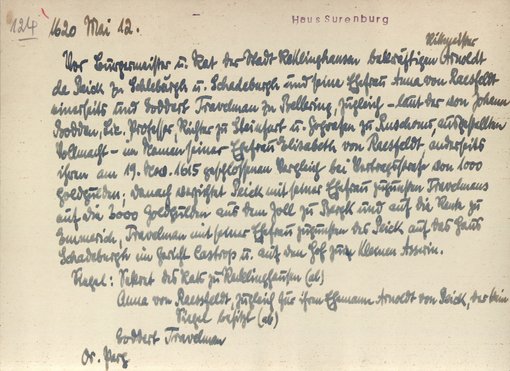 124 1620 Mai 12. Haus Surenburg
Rittmeister
Vor Bürgermeister u. Rat der Stadt Recklinghausen bekräftigen Arnoldt
de Reick zu Schlebürgh u. Schadebergh und seine Ehefrau Anna von Raesfeldt
einerseits und Goddert Travelman zu Bellering, zugleich - laut der von Johann
Bodden, Lic. Professor, Richter zu Steinfurt u. Gografen zu Ruschows, ausgestellten
Vollmacht - im Namen seiner Ehefrau Elisabeth von Raesfeldt anderseits
ihren am 19. Dez. 1615 geschlossenen Vergleich bei Vertragsstrafe von 1000
Goldgulden; danach verzichtet Reick mit seiner Ehefrau zugunsten Travelmans
auf die 3000 Goldgulden aus dem Zoll zu Bergk und auf die Rente zu
Emmerich, Travelman mit seiner Ehefrau zugunsten des Reick auf das Haus
Schadebergh im Gericht Castrop u. auf den Hof zum Kleinen Asswin.
Siegel: Sekret des Rats zu Recklinghausen (ab)
Anna von Raesfeldt, zugleich für ihren Ehemann Arnoldt von Reick, der kein
Siegel besitzt (ab)
Goddert Travelman
Or. Perg